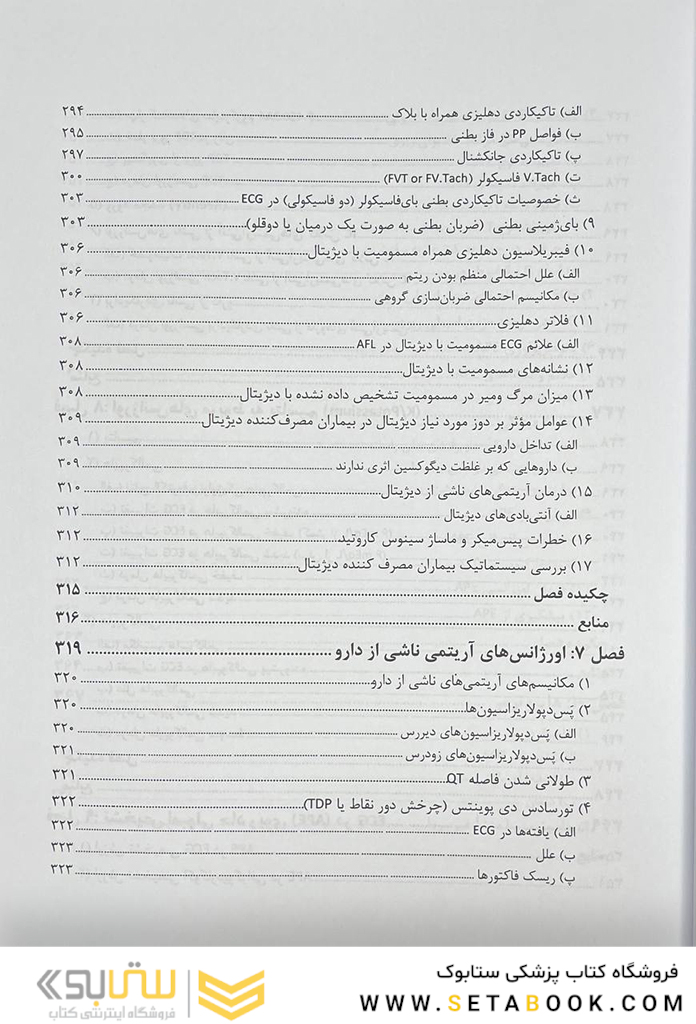 الف) تاکیکاردی دهلیزی همراه با بلاک ۲۹۴
ب) فواصل PP در فاز بطنی ۲۹۵
پ) تاکیکاردی جانکشنال ۲۹۷
ت) V.Tach فاسیکولر (FVT or FV.Tach) ۳۰۰
ث) خصوصیات تاکیکاردی بطنی بای‌فاسیکولر (دو فاسیکولی) در ECG ۳۰۳
۹) بای‌ژمینی بطنی (ضربان بطنی به صورت یک درمیان یا دوقلو) ۳۰۳
۱۰) فیبریلاسیون دهلیزی همراه مسمومیت با دیژیتال ۳۰۶
الف) علل احتمالی منظم بودن ریتم ۳۰۶
ب) مکانیسم احتمالی ضربان‌سازی گروهی ۳۰۶
۱۱) فلاتر دهلیزی ۳۰۶
الف) علائم ECG مسمومیت با دیژیتال در AFL ۳۰۸
۱۲) نشانه‌های مسمومیت با دیژیتال ۳۰۸
۱۳) میزان مرگ ومیر در مسمومیت تشخیص داده نشده با دیژیتال ۳۰۸
۱۴) عوامل مؤثر بر دوز مورد نیاز دیژیتال در بیماران مصرف‌کننده دیژیتال ۳۰۹
الف) تداخل دارویی ۳۰۹
ب) داروهایی که بر غلظت دیگوکسین اثری ندارند ۳۰۹
۱۵) درمان آریتمی‌های ناشی از دیژیتال ۳۱۰
الف) آنتی‌بادی‌های دیژیتال ۳۱۲
۱۶) خطرات پیس‌میکر و ماساژ سینوس کاروتید ۳۱۲
۱۷) بررسی سیستماتیک بیماران مصرف کننده دیژیتال ۳۱۲
چکیده فصل ۳۱۵
منابع ۳۱۶
فصل ۷: اورژانس‌های آریتمی ناشی از دارو ۳۱۹
۱) مکانیسم‌های آریتمی‌های ناشی از دارو ۳۲۰
۲) پَس‌دپولاریزاسیون‌ها ۳۲۰
الف) پَس‌دپولاریزاسیون‌های دیررس ۳۲۰
ب) پَس‌دپولاریزاسیون‌های زودرس ۳۲۱
۳) طولانی شدن فاصله QT ۳۲۱
۴) تورسادس دی پوینتس (چرخش دور نقاط یا TDP) ۳۲۲
الف) یافته‌ها در ECG ۳۲۲
ب) علل ۳۲۳
پ) ریسک فاکتورها ۳۲۳
فروشگاه کتاب پزشکی ستابوک
WWW.SETABOOK.COM
ستابوک
فروشگاه اینترنتی کتاب